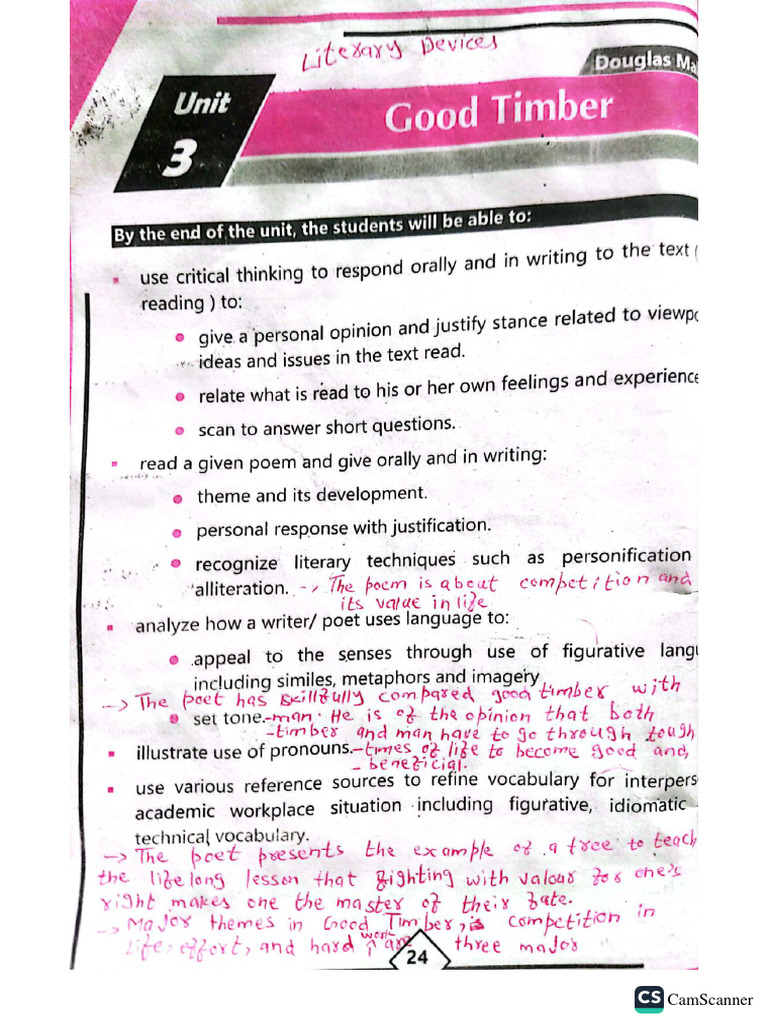 Literary Devices
Douglas Ma
Unit
3
Good Timber
By the end of the unit, the students will be able to:
use critical thinking to respond orally and in writing to the text (
reading ) to:
give a personal opinion and justify stance related to viewpo
ideas and issues in the text read.
relate what is read to his or her own feelings and experience
scan to answer short questions.
read a given poem and give orally and in writing:
theme and its development.
personal response with justification.
recognize literary techniques such as personification
alliteration. -> The poem is about competition and
its value in life
analyze how a writer/ poet uses language to:
appeal to the senses through use of figurative langu
including similes, metaphors and imagery
-> The poet has skillfully compared good timber with
set tone. -man. He is of the opinion that both
-timber and man have to go through tough
illustrate use of pronouns. -times of life to become good and,
- beneficial.
use various reference sources to refine vocabulary for interpers
academic workplace situation including figurative, idiomatic
technical vocabulary.
-> The poet presents the example of a tree to teach
the lifelong lesson that fighting with valour for one's
right makes one the master of their fate.
-> Major themes in Good Timber, is competition in
life, effort, and hard work are three major
24
CS CamScanner